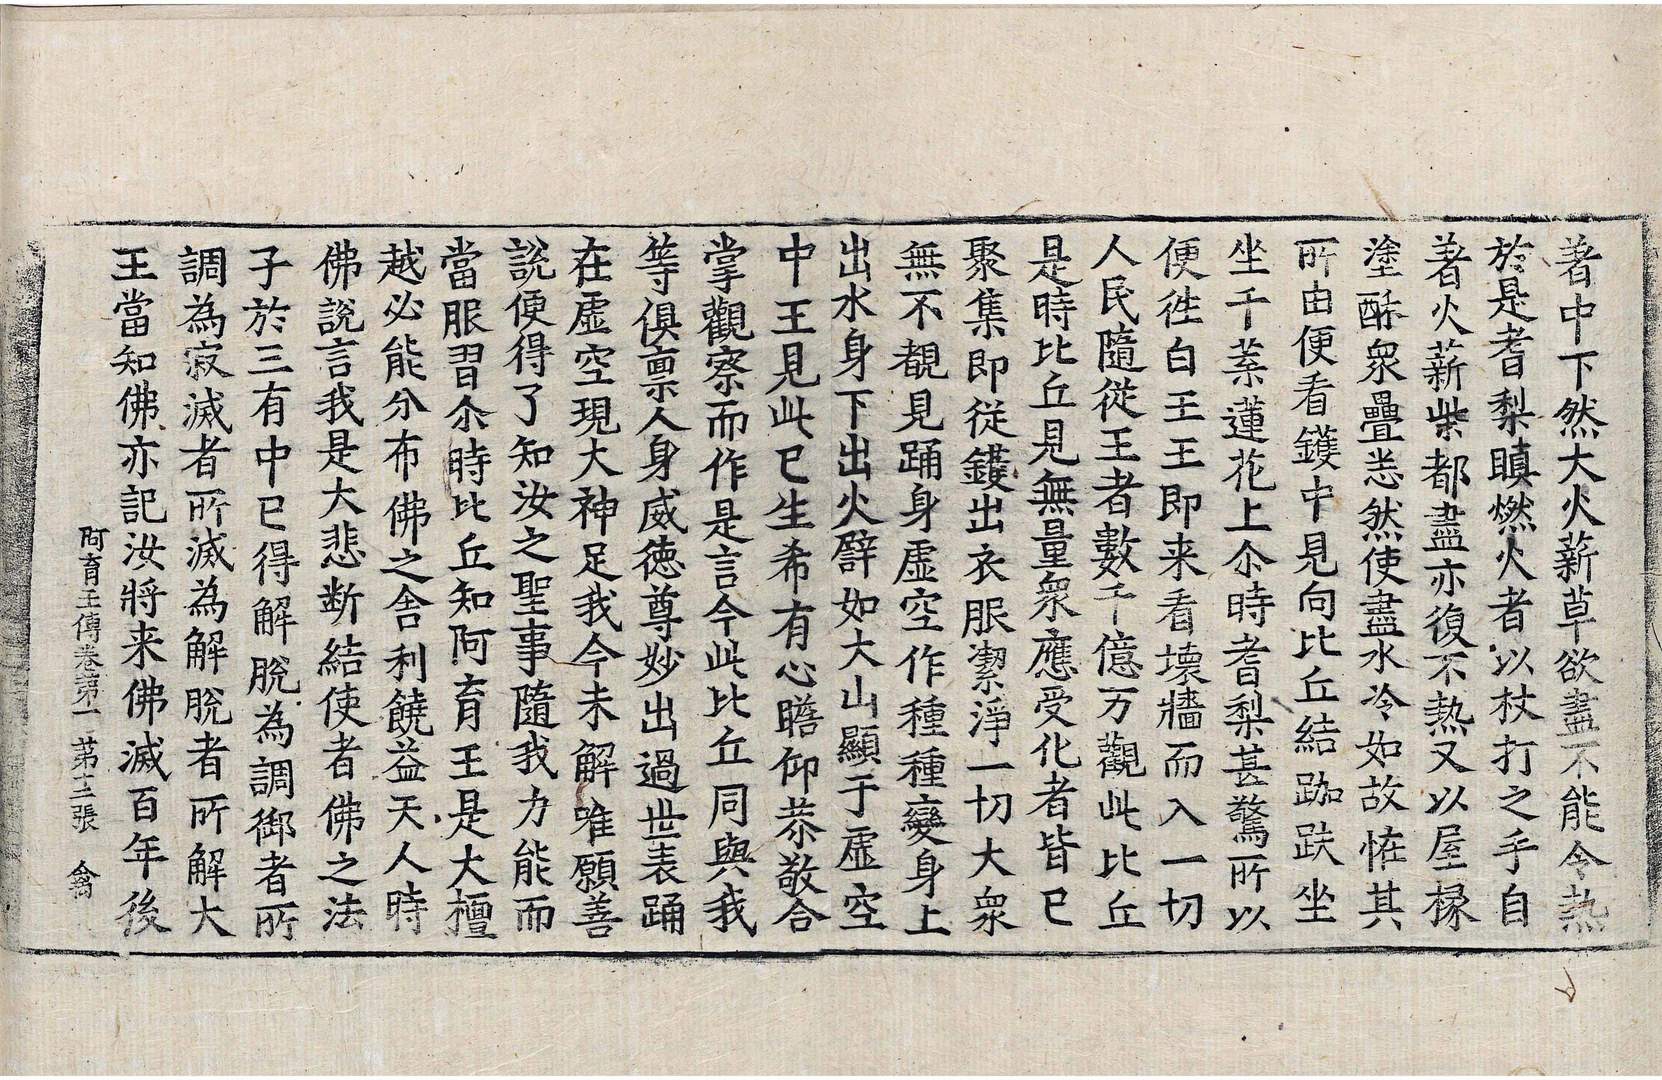 著中下然大火薪草欲盡不能令熱
於是耆梨瞋燃火者以杖打之手自
著火薪柴都盡亦復不熱又以屋椽
塗酥衆疊悉然使盡水冷如故恠其
所由便看鑊中見向比丘結跏趺坐
坐千葉蓮花上尒時耆梨甚驚所以
便徃白王王即来看壞牆而入一切
人民隨從王者數千億万觀此比丘
是時比丘見無量衆應受化者皆已
聚集即從鑊出衣服潔淨一切大衆
無不覩見踊身虛空作種種變身上
出水身下出火譬如大山顯于虛空
中王見此已生希有心瞻仰恭敬合
掌觀察而作是言今此比丘同與我
等俱禀人身威德尊妙出過世表踊
在虛空現大神足我今未解唯願善
說便得了知汝之聖事隨我力能而
當服習尒時比丘知阿育王是大檀
越必能分布佛之舍利饒益天人時
佛說言我是大悲断結使者佛之法
子於三有中已得解脫為調御者所
調為寂滅者所滅為解脫者所解大
王當知佛亦記汝將来佛滅百年後
阿育王傳卷第一 第十二張 禽